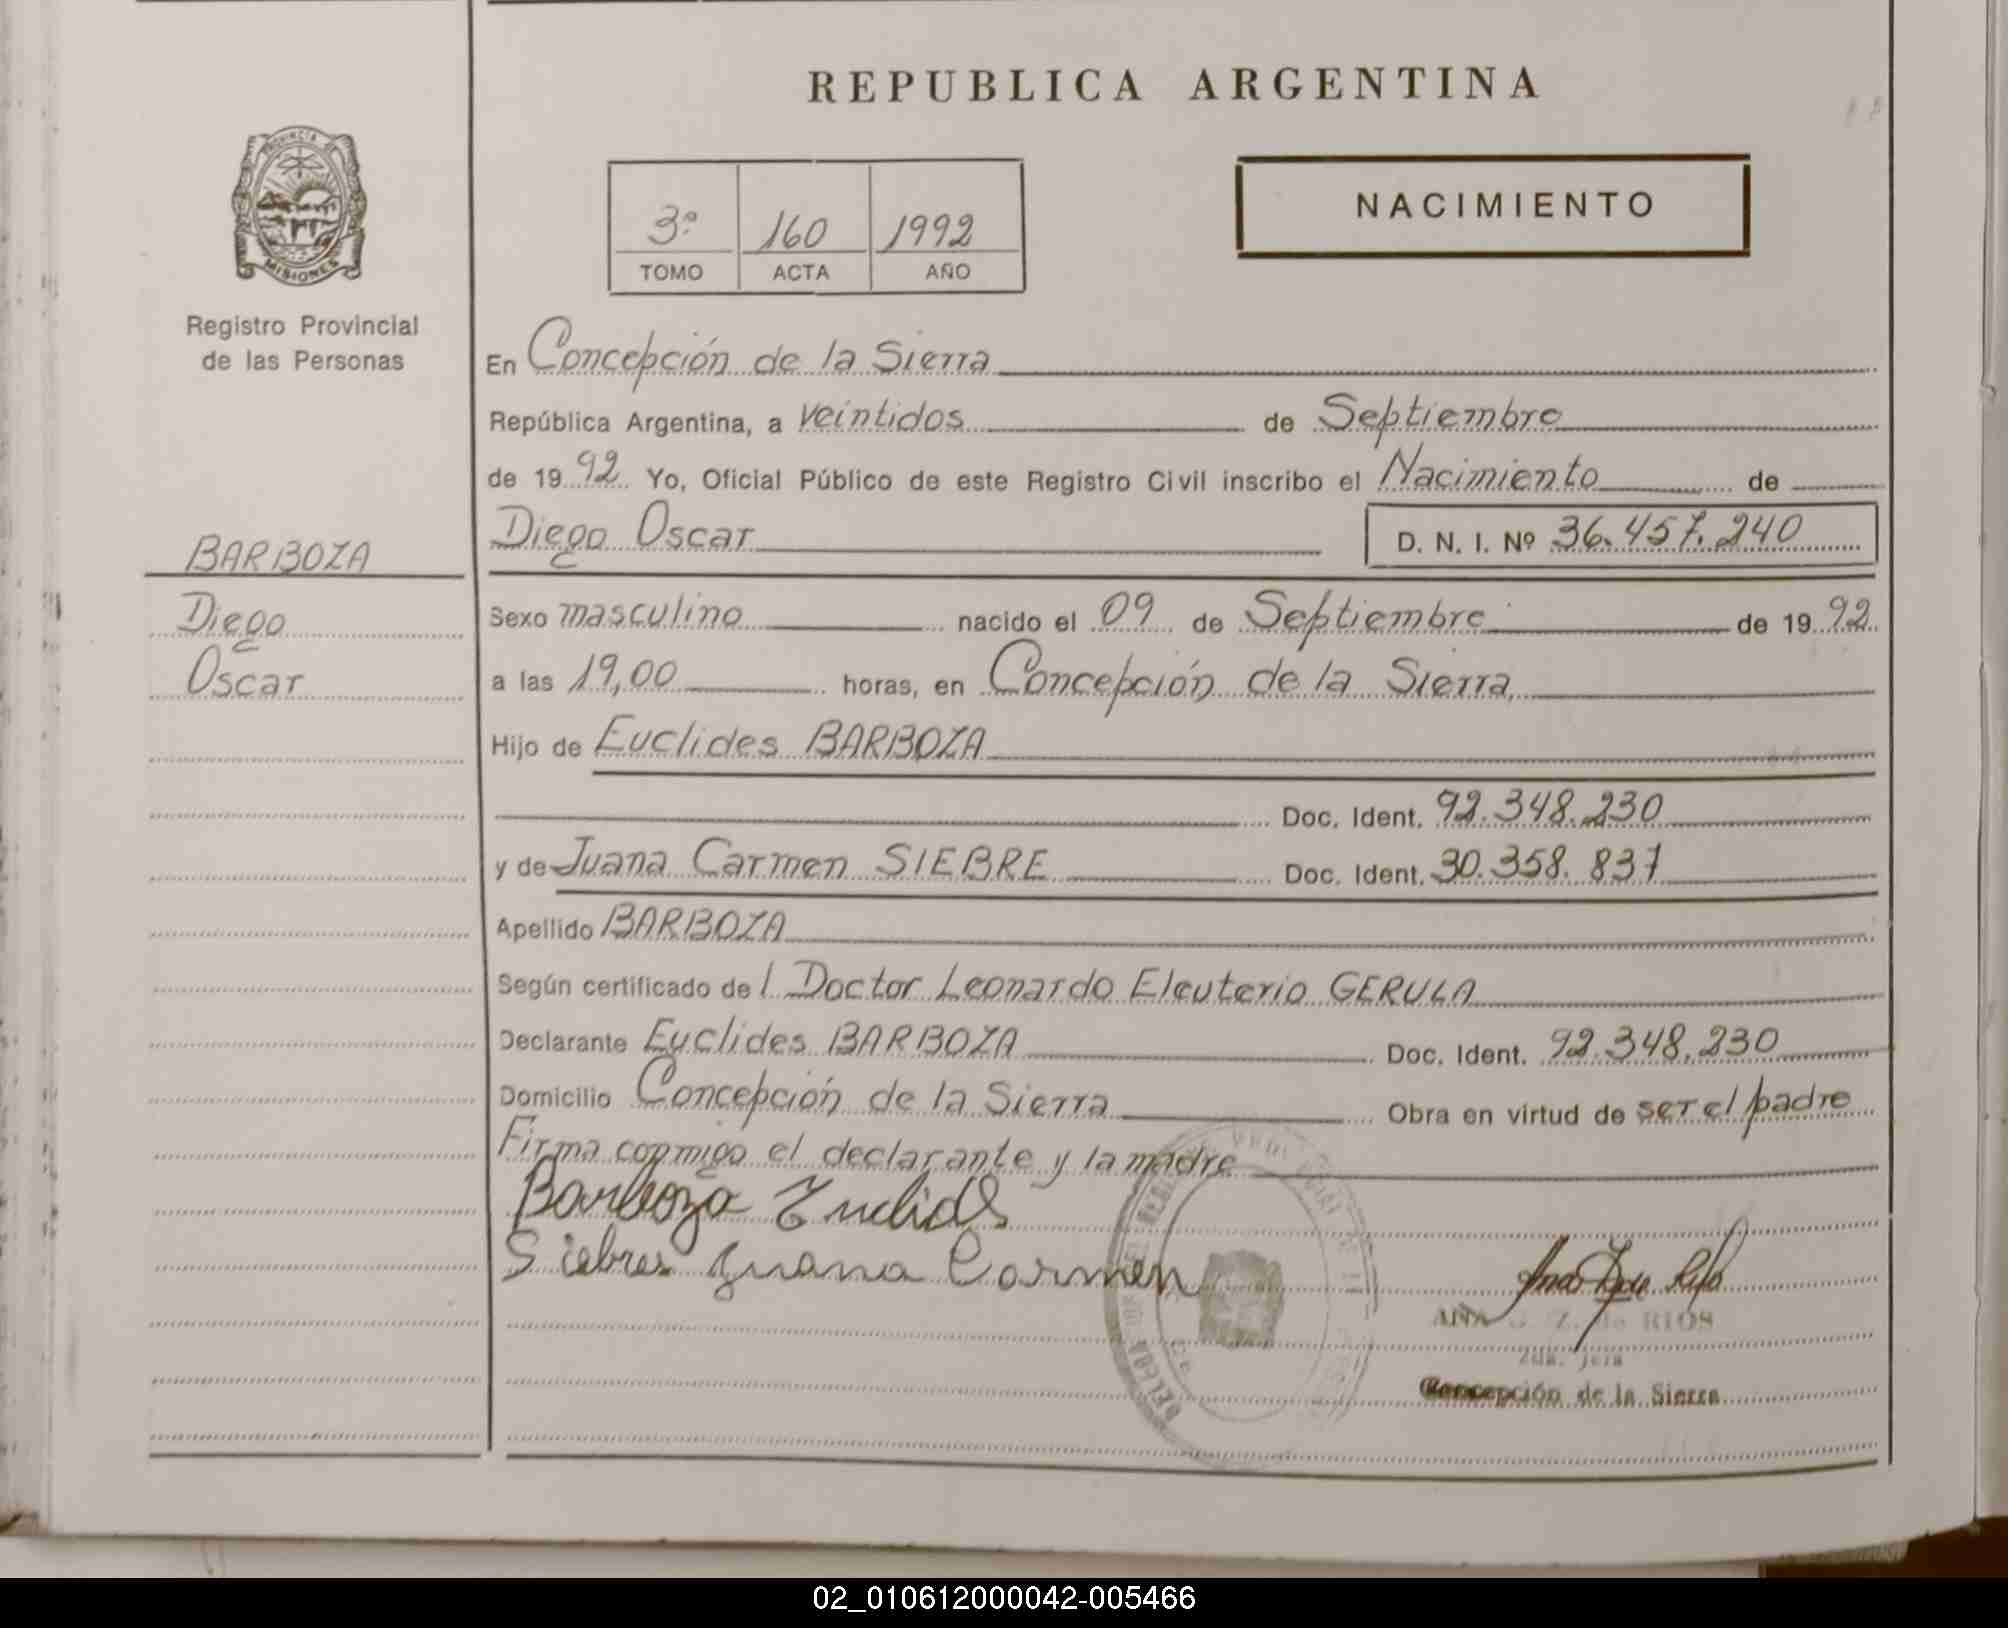 REPUBLICA ARGENTINA
NACIMIENTO
3º 160 1992
TOMO ACTA AÑO
PROVINCIA DE
MISIONES
Registro Provincial
de las Personas
BARBOZA
Diego
Oscar
En Concepción de la Sierra
República Argentina, a veintidos de Septiembre
de 1992 Yo, Oficial Público de este Registro Civil inscribo el Nacimiento de
Diego Oscar D. N. I. Nº 36.457.240
Sexo masculino nacido el 09 de Septiembre de 1992
a las 19,00 horas, en Concepción de la Sierra,
Hijo de Euclides BARBOZA
Doc. Ident. 92.348.230
y de Juana Carmen SIEBRE Doc. Ident. 30.358.837
Apellido BARBOZA
Según certificado del Doctor Leonardo Eleuterio GERULA
Declarante Euclides BARBOZA Doc. Ident. 92.348.230
Domicilio Concepción de la Sierra Obra en virtud de ser el padre
Firma conmigo el declarante y la madre
Barboza Euclides
Siebres Juana Carmen
ANA Z. de RIOS
2da. Jefa
Concepción de la Sierra
02_010612000042-005466